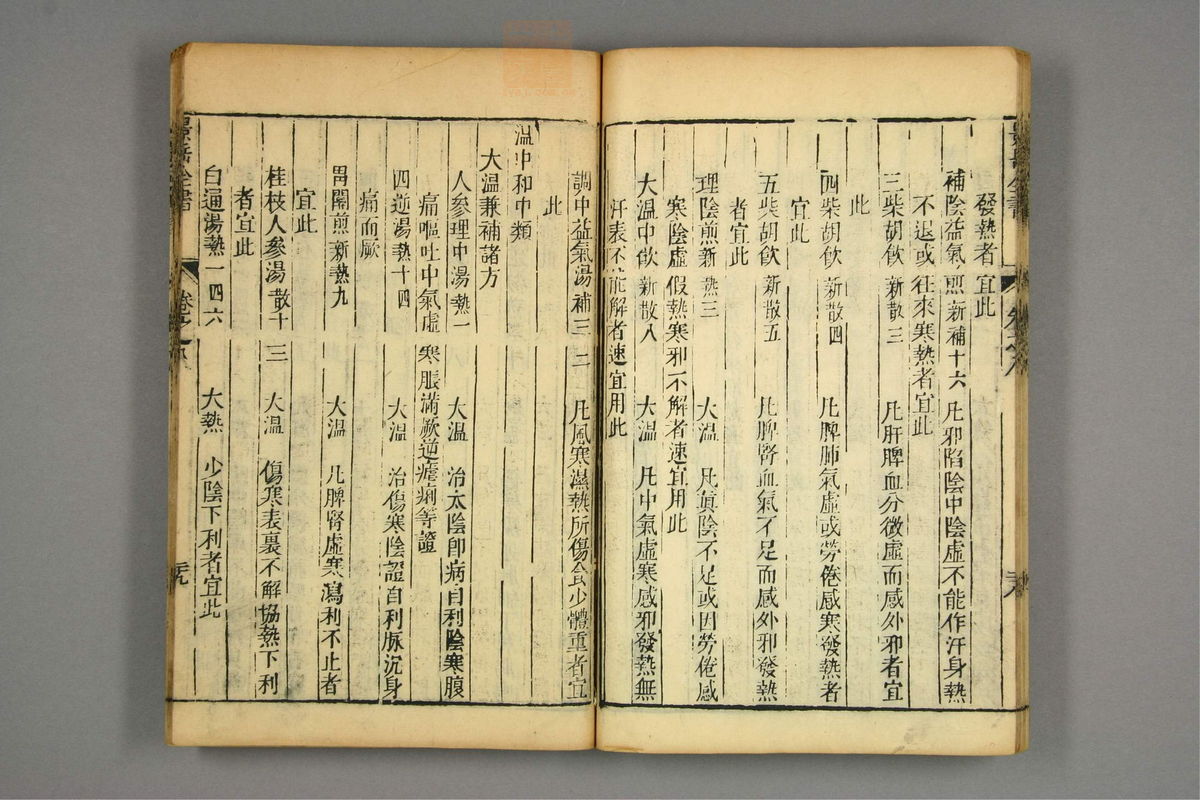 景岳全書
發熱者宜此
補陰益氣煎 新補十六 凡邪陷陰中陰虛不能作汗身熱
不退或往來寒熱者宜此
三柴胡飲 新散三 凡肝脾血分微虛而感外邪者宜
此
四柴胡飲 新散四 凡脾肺氣虛或勞倦感寒發熱者
宜此
五柴胡飲 新散五 凡脾腎血氣不足而感外邪發熱
者宜此
理陰煎 新熱三 大溫 凡眞陰不足或因勞倦感
寒陰虛假熱寒邪不解者速宜用此
大溫中飲 新散八 大溫 凡中氣虛寒感邪發熱無
汗表不能解者速宜用此
調中益氣湯 補三二 凡風寒濕熱所傷食少體重者宜
此
溫中和中類
大溫兼補諸方
人參理中湯 熱一 大溫 治太陰卽病自利陰寒腹
痛嘔吐中氣虛寒脹滿厥逆瘧痢等證
四逆湯 熱十四 大溫 治傷寒陰證自利脉沉身
痛而厥
胃關煎 新熱九 大溫 凡脾腎虛寒瀉利不止者
宜此
桂枝人參湯 散十三 大溫 傷寒表裏不解協熱下利
者宜此
白通湯 熱一四六 大熱 少陰下利者宜此
景岳全書
卷之八